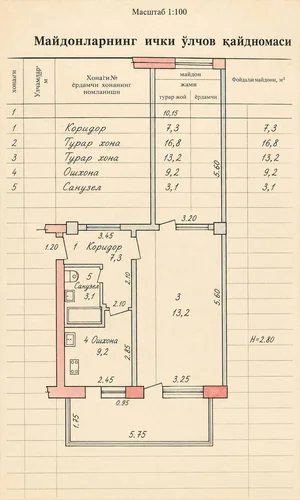 Масштаб 1:100
Майдонларнинг ички ўлчов қайдномаси
хонаги Узламзур, м Хонаги № ёрдамчи хонанинг номланиши майдон жами Фойдали майдони, м²
турар жой ёрдамчи
1 10,15
1 Коридор 7,3 7,3
2 Турар хона 16,8 16,8
3 Турар хона 13,2 13,2
4 Ошхона 9,2 9,2
5 Санузел 3,1 3,1
5.60
3.20
3.45
1.20
1 Коридор
7,3
2.10
5
Санузел
3,1
2.10
5.60
3
13,2
4 Ошхона
9,2
2.85
H=2.80
2.45
3.25
0.95
1.75
5.75